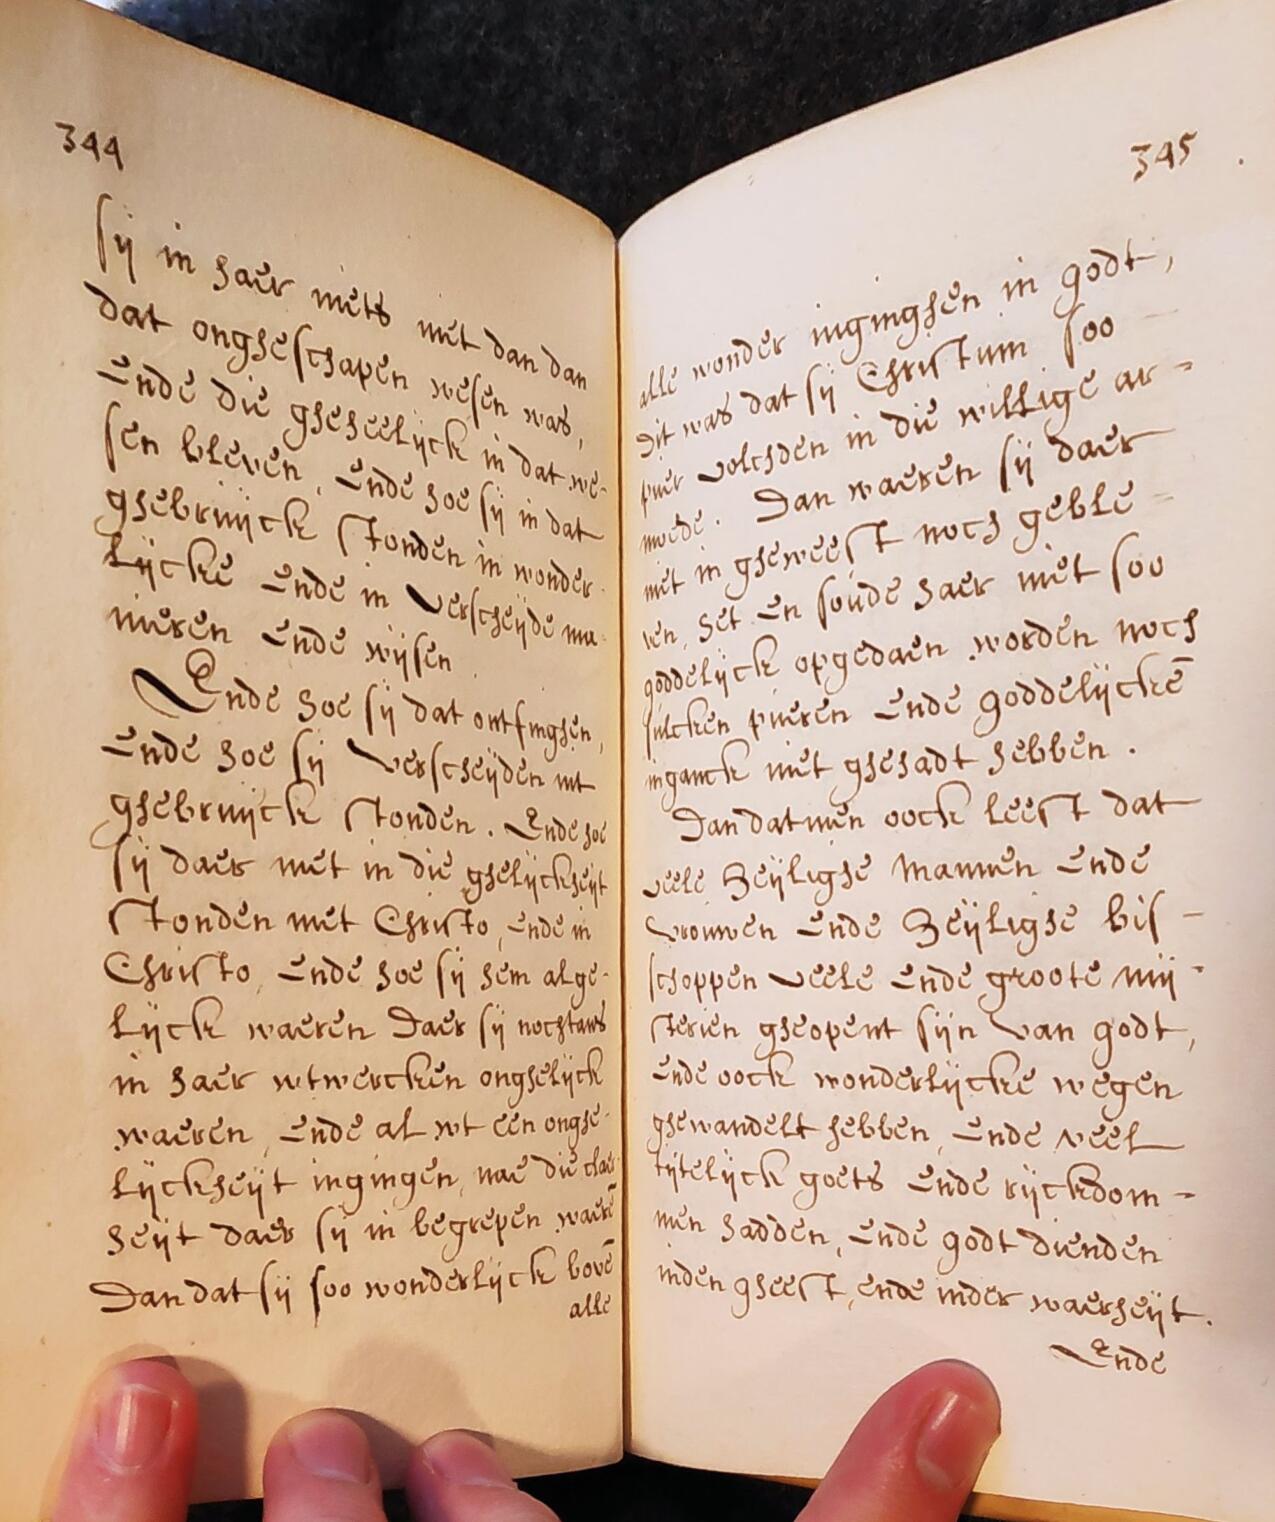 344
sij in haer niets niet dan dan
dat ongheschapen wesen was,
Ende die gheheelijck in dat we-
sen bleven, Ende hoe sij in dat
ghebruijck stonden in wonder-
lijcke Ende in verscheijde ma-
nieren Ende wijsen
Ende hoe sij dat ontfinghen,
Ende hoe sij verscheijden int
ghebruijck stonden. Ende hoe
sij daer niet in die ghelijckheijt
stonden met Christo, ende in
Christo, Ende hoe sij hem alge-
lijck waeren Daer sij nochtans
in haer wtwercken onghelijck
waeren, Ende al wt een onghe-
lijckheijt ingingen, nae die claer
heijt daer sij in begrepen waerē
Dan dat sij soo wonderlijck bovē
alle
345
alle wonder inginghen in godt,
Dit was dat sij Christum soo
puer volchden in die willige ar-
moede. Dan waeren sij daer
niet in gheweest noch geble-
ven, het en soude haer niet soo
goddelijck opgedaen worden noch
sulcken pueren Ende goddelijckē
inganck niet ghehadt hebben.
Dan datmen oock leest dat
veele Heijlighe mannen Ende
vrouwen Ende Heijlighe bis-
schoppen veele Ende groote mij-
sterien gheopent sijn van godt,
Ende oock wonderlijcke wegen
ghewandelt hebben, Ende veel
tijtelijck goets Ende rijckdom-
men hadden, Ende godt dienden
inden gheest, ende inder waerheijt.
Ende